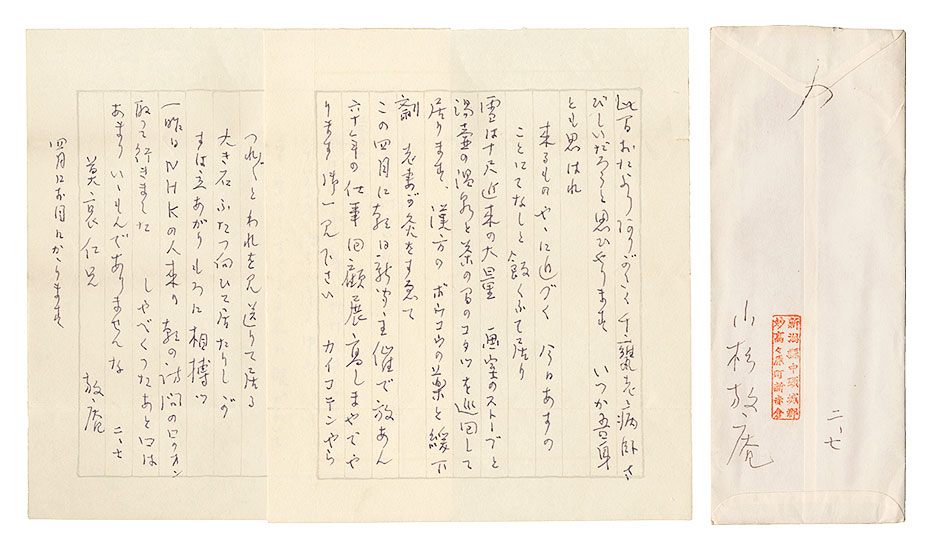 此間おたよりありがたく 千甕老病臥さ
びしいだろうと思ひやります いつか吾身
とも思はれ
来るものやゝに近づく 今日あすの
ことにてなしと飯くふて居り
雪は十尺近来の大量 画室のストーブと
湯壷の温泉と茶の間のコタツを巡回して
居ります、漢方のボウコウの薬と緩下
剤 老妻が灸をすゑて
この四月に朝日新聞主催で放あん
六十年の仕事回顧展高しまやでや
ります 御一見下さい カイコテンやら
つれ〴〵とわれを見送りて居る
大き石ふたつ向ひて居たりしが
立あがりもろに相搏つ
一昨日NHKの人来り朝の訪問のロクオン
取って行きました しゃべくったあと口は
あまりいゝもんでありませんな 二、七
放庵
莫哀仁兄
四月にお目にかゝります
〆
二、七
新潟縣中頸城郡
妙高々原町新赤倉
小杉放庵